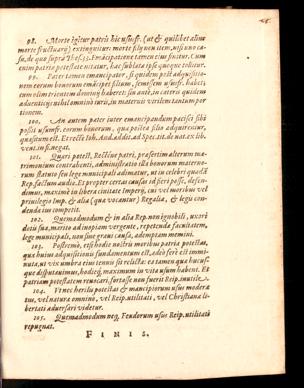 98. Morte igitur patris hic ususfr. (ut & quilibet alius
morte fructuarii) extinguitur: morte filij non item, nisi uno ca-
su, de quo supra Thes. 33. Emancipatione tamen eius finitur. Cum
enim patria potestate nitatur, hac sublata ipse quoque tollitur.
99. Pater tamen emancipator, si quidem post adquisitio-
nem eorum bonorum emancipet filium, semissem ususfr. habet;
cum olim trientem dominij haberet: sin ante, in ceteris quidem
adventicijs nihil omnino iuris, in maternis virilem tantum por-
tionem.
100. An autem pater iure emancipandum pacisci sibi
possit usumfr. eorum bonorum, quæ postea filio adquirerentur,
quæsitum est. Et recte Ioh. And. addit. ad Spec. tit. de nat. ex lib.
vent. in fi. negat.
101. Quari potest. Rectius patri, præsertim alterum ma-
trimonium contrahenti, administratio illa bonorum materno-
rum statuto seu lege municipali adimatur, ut in celebri quadã
Rep. factum audio. Et propter certas causas id fieri posse, defen-
dimus, maximè in libera civitate Imperij, cui vel moribus vel
privilegio Imp. & alia (quæ vocantur) Regalia, & legis con-
dendæ ius competit.
102. Quemadmodum & in alia Rep. non ignobili, uxori
dotis suæ, marito ad inopiam vergente, repetendæ facultatem,
lege municipali, non sine gravi causa, ademptam memini.
103. Postremò, etsi hodie nostris moribus patria potestas,
quæ huius adquisitionis fundamentum est, adeò ferè est immi-
nuta, ut vix umbra eius nobis sit relicta: ea tamen quæ hucus-
que disputavimus, hodieq; maximum in vita usum habent. Et
patriam potestatem revocari, fortasse non fuerit inutile.
104. Ut nec herilis potestas & mancipiorum usus modera-
tus, vel naturæ omnino, vel Reip. utilitati, vel Christianæ li-
bertati adversari videtur.
105. Quemadmodum neq; Feudorum usus Reip. utilitati
repugnat.
FINIS.